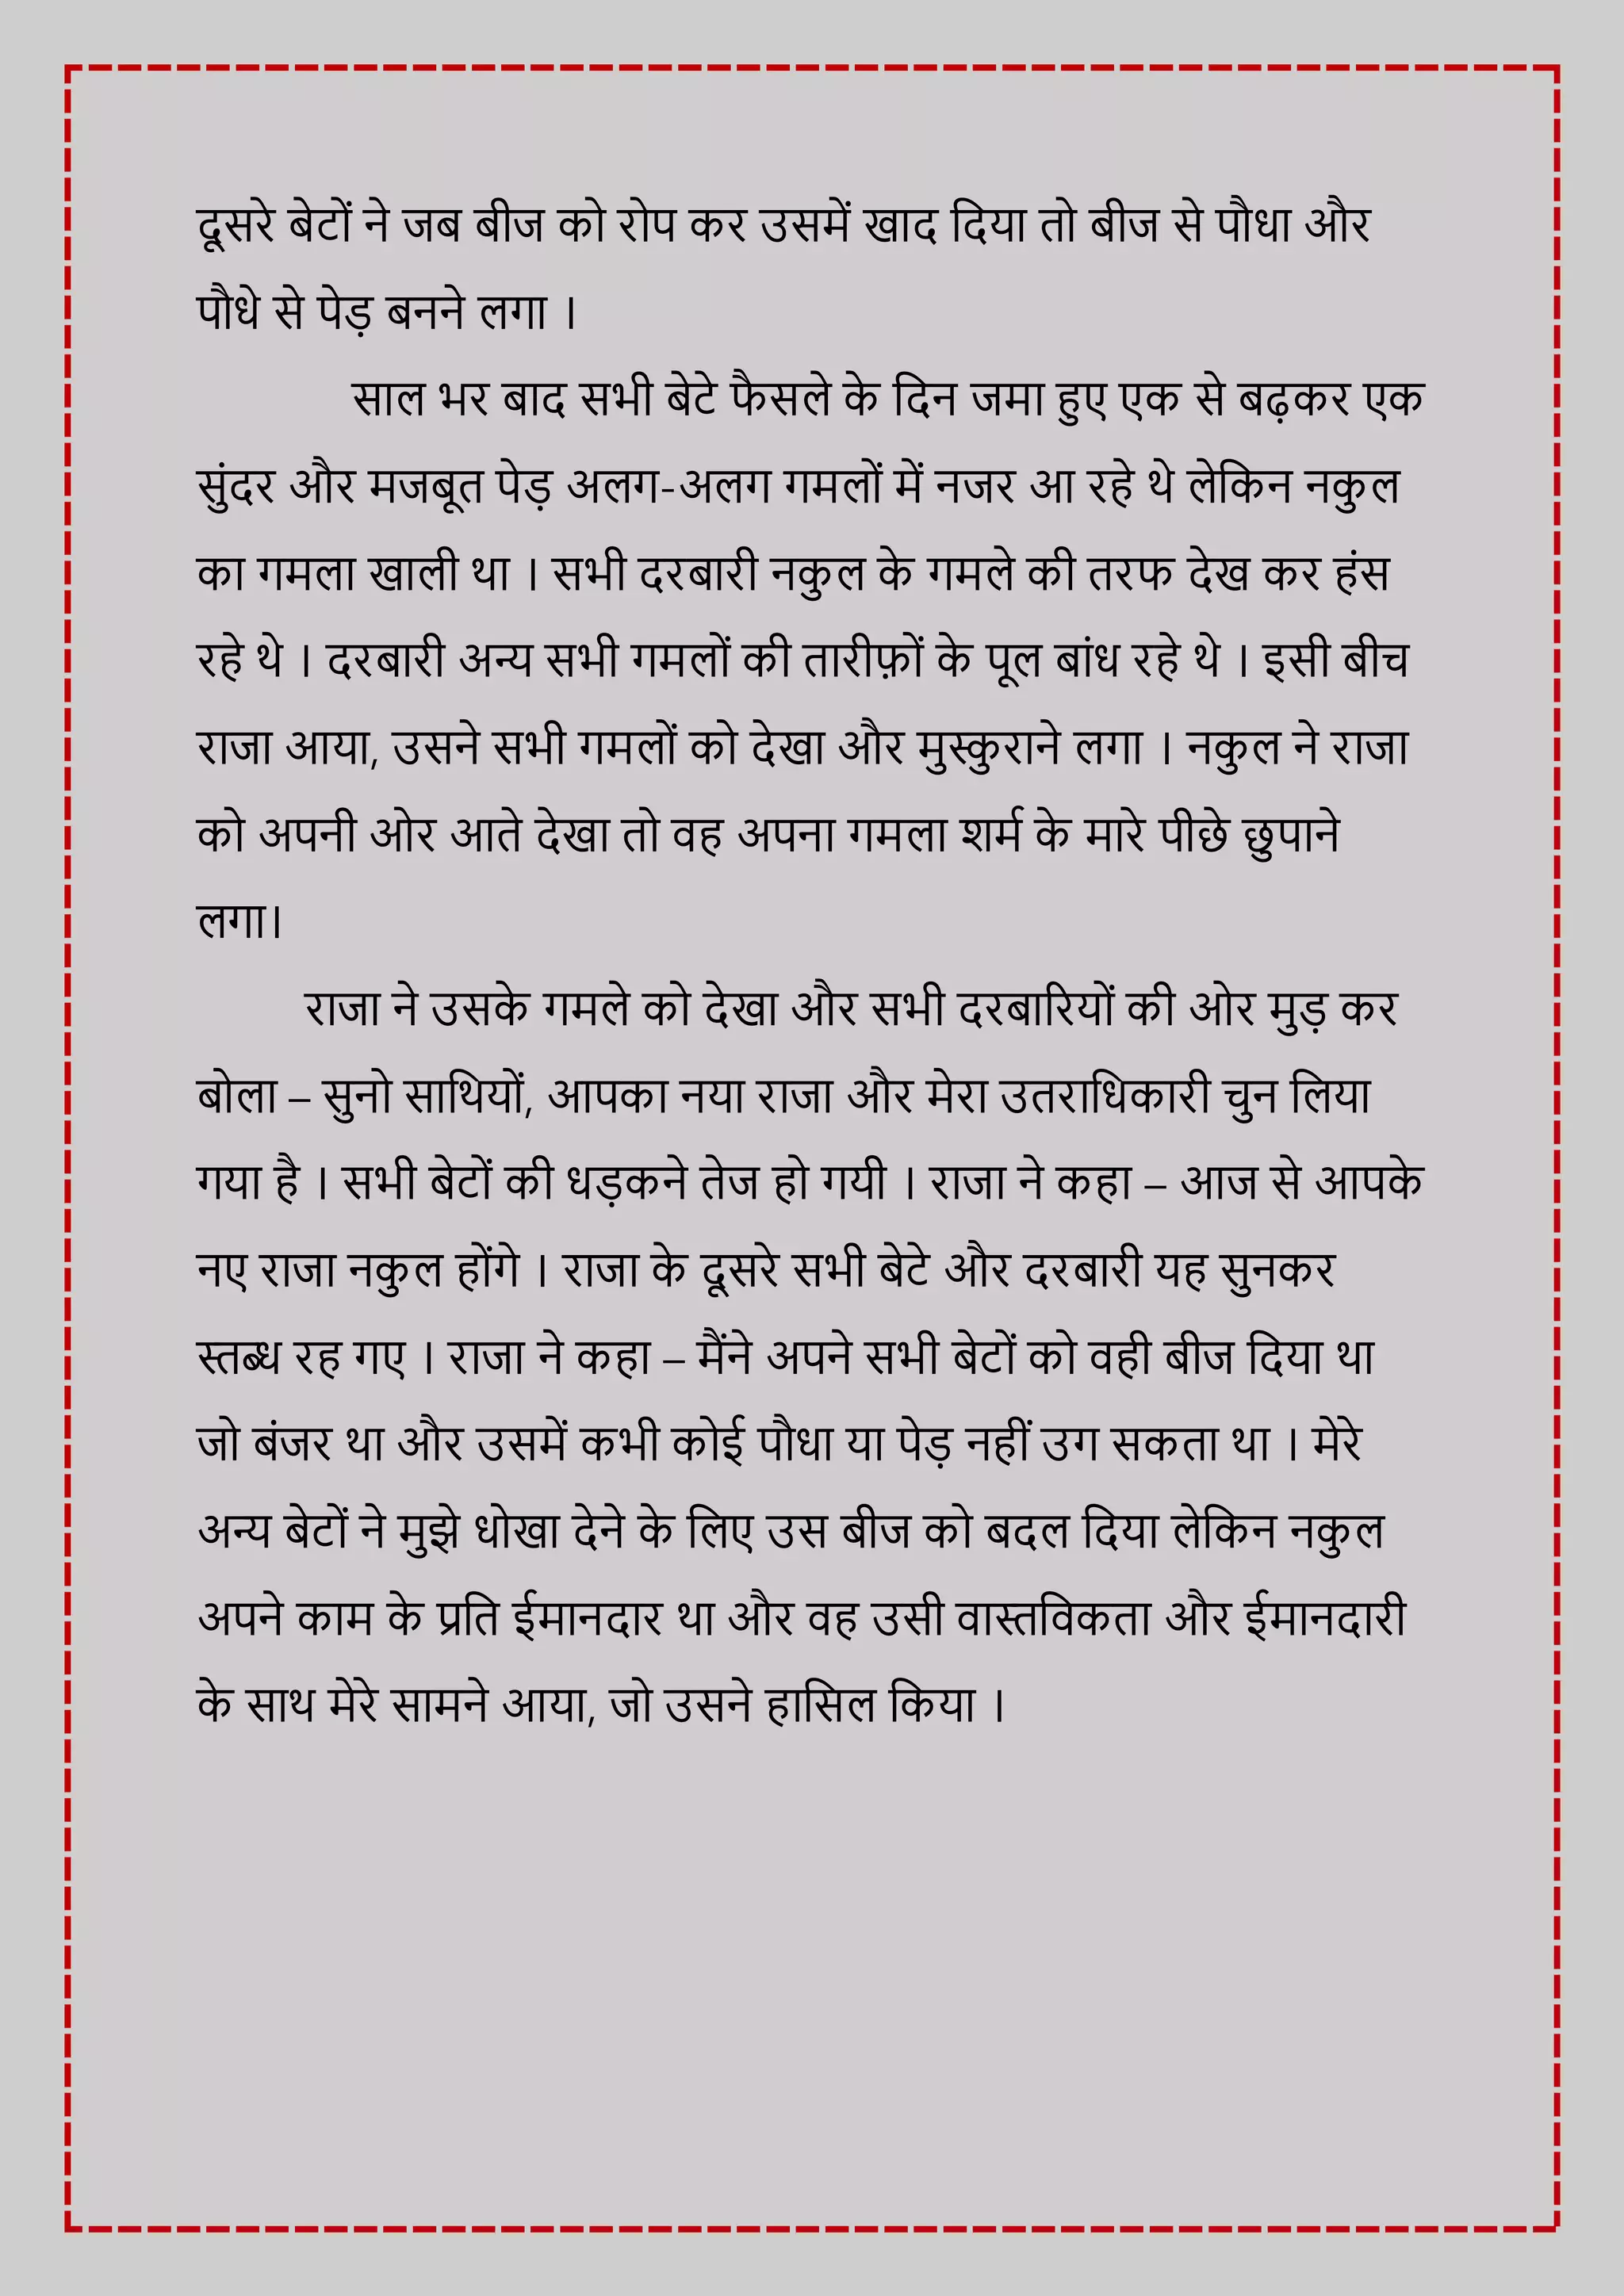 दूसरे बेटों ने जब बीज को रोप कर उसमें खाद दिया तो बीज से पौधा और
पौधे से पेड़ बनने लगा ।
साल भर बाद सभी बेटे फैसले के दिन जमा हुए एक से बढ़कर एक
सुंदर और मजबूत पेड़ अलग-अलग गमलों में नजर आ रहे थे लेकिन नकुल
का गमला खाली था । सभी दरबारी नकुल के गमले की तरफ देख कर हंस
रहे थे । दरबारी अन्य सभी गमलों की तारीफ़ों के पूल बांध रहे थे । इसी बीच
राजा आया, उसने सभी गमलों को देखा और मुस्कुराने लगा । नकुल ने राजा
को अपनी ओर आते देखा तो वह अपना गमला शर्म के मारे पीछे छुपाने
लगा।
राजा ने उसके गमले को देखा और सभी दरबारियों की ओर मुड़ कर
बोला – सुनो साथियों, आपका नया राजा और मेरा उतराधिकारी चुन लिया
गया है । सभी बेटों की धड़कने तेज हो गयी । राजा ने कहा – आज से आपके
नए राजा नकुल होंगे । राजा के दूसरे सभी बेटे और दरबारी यह सुनकर
स्तब्ध रह गए । राजा ने कहा – मैंने अपने सभी बेटों को वही बीज दिया था
जो बंजर था और उसमें कभी कोई पौधा या पेड़ नहीं उग सकता था । मेरे
अन्य बेटों ने मुझे धोखा देने के लिए उस बीज को बदल दिया लेकिन नकुल
अपने काम के प्रति ईमानदार था और वह उसी वास्तविकता और ईमानदारी
के साथ मेरे सामने आया, जो उसने हासिल किया ।